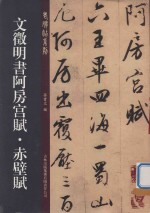 阿房宮賦
六王畢四海一蜀山
兀阿房出覆壓三百
文徵明書阿房宮賦・赤壁賦